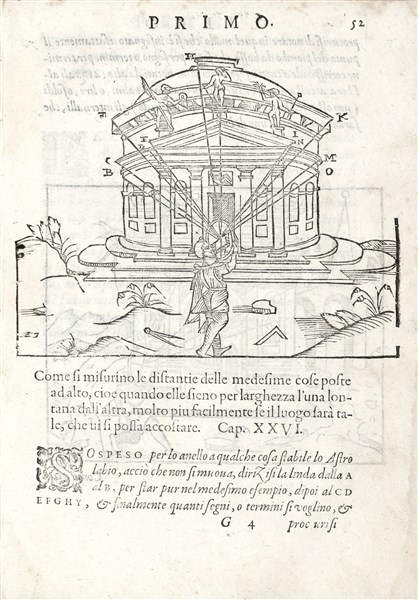 PRIMO. 52
H
P
F K
T I N
C M
B O
A
Come si misurino le distantie delle medesime cose poste
ad alto, cioe quando elle sieno per larghezza l'una lon-
tana dall'altra, molto piu facilmente se il luogo sarà ta-
le, che ui si possa accostare. Cap. XXVI.
SOSPESO per lo anello a qualche cosa stabile lo Astro
labio, acciò che non si muoua, dirizisi la linda dalla A
al B, per star pur nel medesimo esempio, dipoi al C D
E F G H Y, & finalmente quanti segni, o termini si voglino, &
G 4 proc urisi